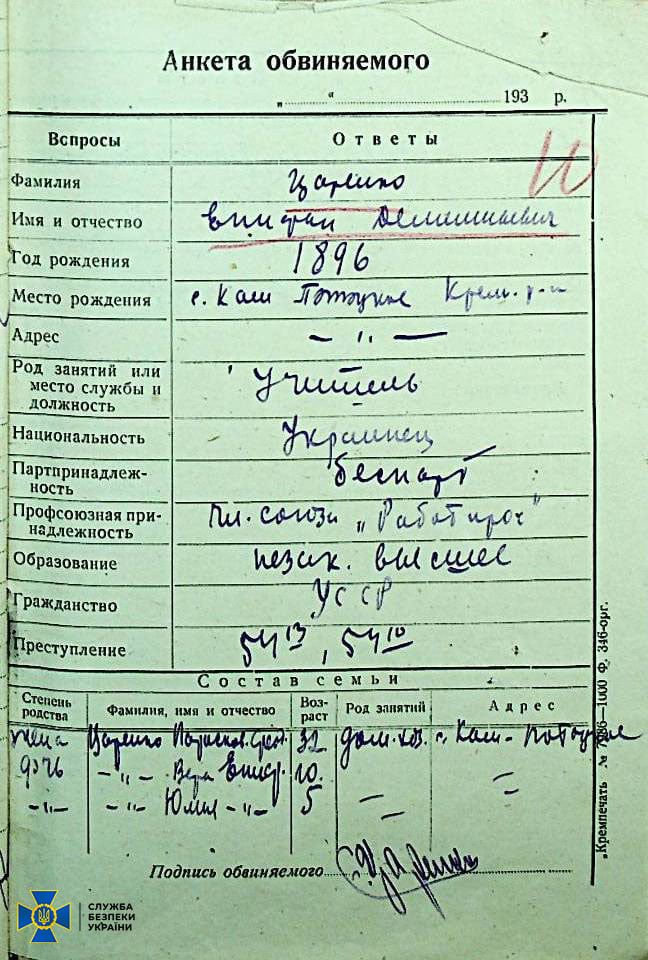 Анкета обвиняемого
„ “ 193 р.
Вопросы Ответы
Фамилия Царенко
Имя и отчество Епифан
Год рождения 1896
Место рождения с. Кам Потоцкое Крем. р-н
Адрес — „ —
Род занятий или
место службы и
должность Учитель
Национальность Украинец
Партпринадлеж-
ность беспарт
Профсоюзная при-
надлежность чл. союза „Работпрос“
Образование незак. высшее
Гражданство УССР
Преступление 54 13, 54 10
Состав семьи
Степень
родства Фамилия, имя и отчество Воз-
раст Род занятий Адрес
жена Царенко 32 дом. хоз. с. Кам-Потоцкое
дочь — „ — Вера Епиф. 10 —
— „ — — „ — Юлия — „ — 5 — —
Подпись обвиняемого
„Кремпечать № 1000 Ф. 346-орг.
СЛУЖБА
БЕЗПЕКИ
УКРАЇНИ